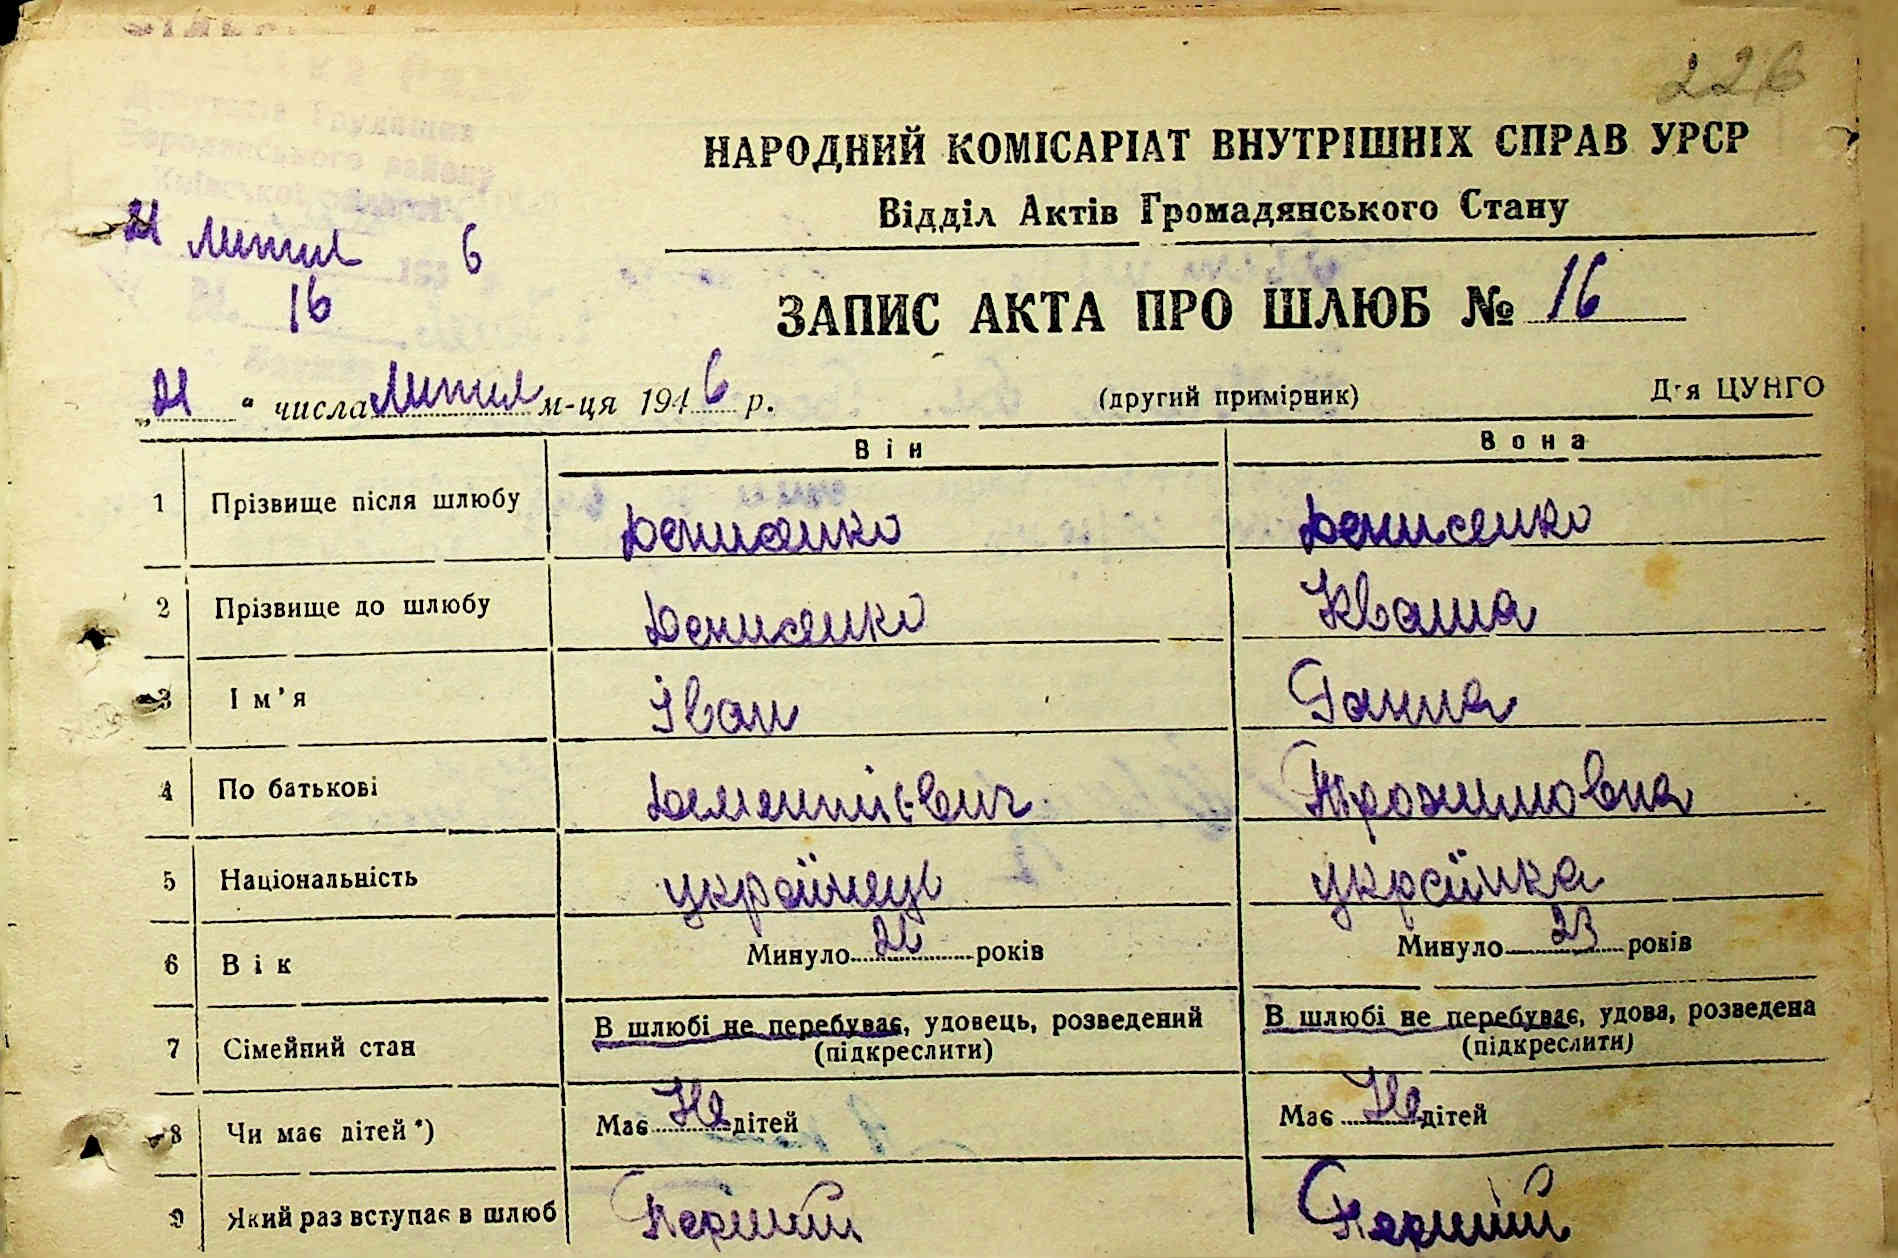 226
НАРОДНИЙ КОМІСАРІАТ ВНУТРІШНІХ СПРАВ УРСР
Відділ Актів Громадянського Стану
Депутатів Трудящих
Бородянського району
Київської області
21 липня 6
16
ЗАПИС АКТА ПРО ШЛЮБ № 16
„21“ числа липня м-ця 1946 р. (другий примірник) Для ЦУНГО
Він Вона
1 Прізвище після шлюбу Денисенко Денисенко
2 Прізвище до шлюбу Денисенко Кваша
3 Ім'я Іван Ганна
4 По батькові Дементієвич Трохимовна
5 Національність українець українка
6 Вік Минуло 26 років Минуло 23 років
7 Сімейний стан В шлюбі не перебуває, удовець, розведений В шлюбі не перебуває, удова, розведена
(підкреслити) (підкреслити)
8 Чи має дітей *) Має Не дітей Має Не дітей
9 Який раз вступає в шлюб Перший Перший